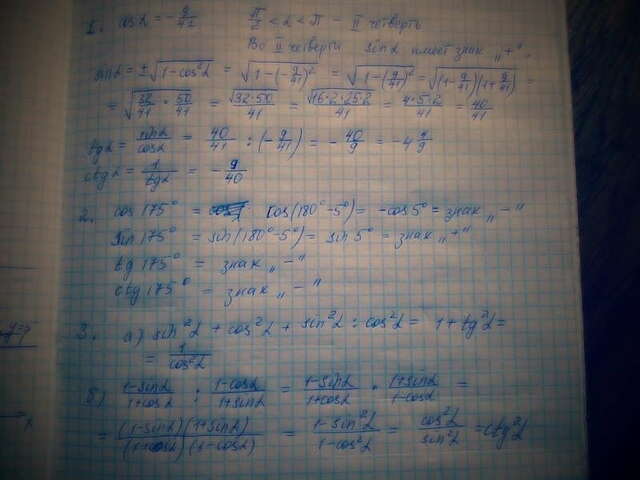 1. cos α = - 9/41    π/2 < α < π - II четверть
Во II четверти sin α имеет знак „+".
sin α = ±√(1-cos²α) = √(1-(-9/41)²) = √(1-(9/41)²) = √((1-9/41)(1+9/41)) =
= √(32/41 · 50/41) = √(32·50)/41 = √(16·2·25·2)/41 = 4·5·2/41 = 40/41
tg α = sin α/cos α = 40/41 : (-9/41) = - 40/9 = -4 4/9
ctg α = 1/tg α = - 9/40
2. cos 175° = cos(180°-5°) = -cos 5° = знак „-"
sin 175° = sin(180°-5°) = sin 5° = знак „+"
tg 175° = знак „-"
ctg 175° = знак „-"
3. а) sin²α + cos²α + sin²α : cos²α = 1 + tg²α =
= 1/cos²α
б) (1-sin α)/(1+cos α) : (1-cos α)/(1+sin α) = (1-sin α)/(1+cos α) · (1+sin α)/(1-cos α) =
= (1-sin α)(1+sin α)/(1+cos α)(1-cos α) = (1-sin²α)/(1-cos²α) = cos²α/sin²α = ctg²α